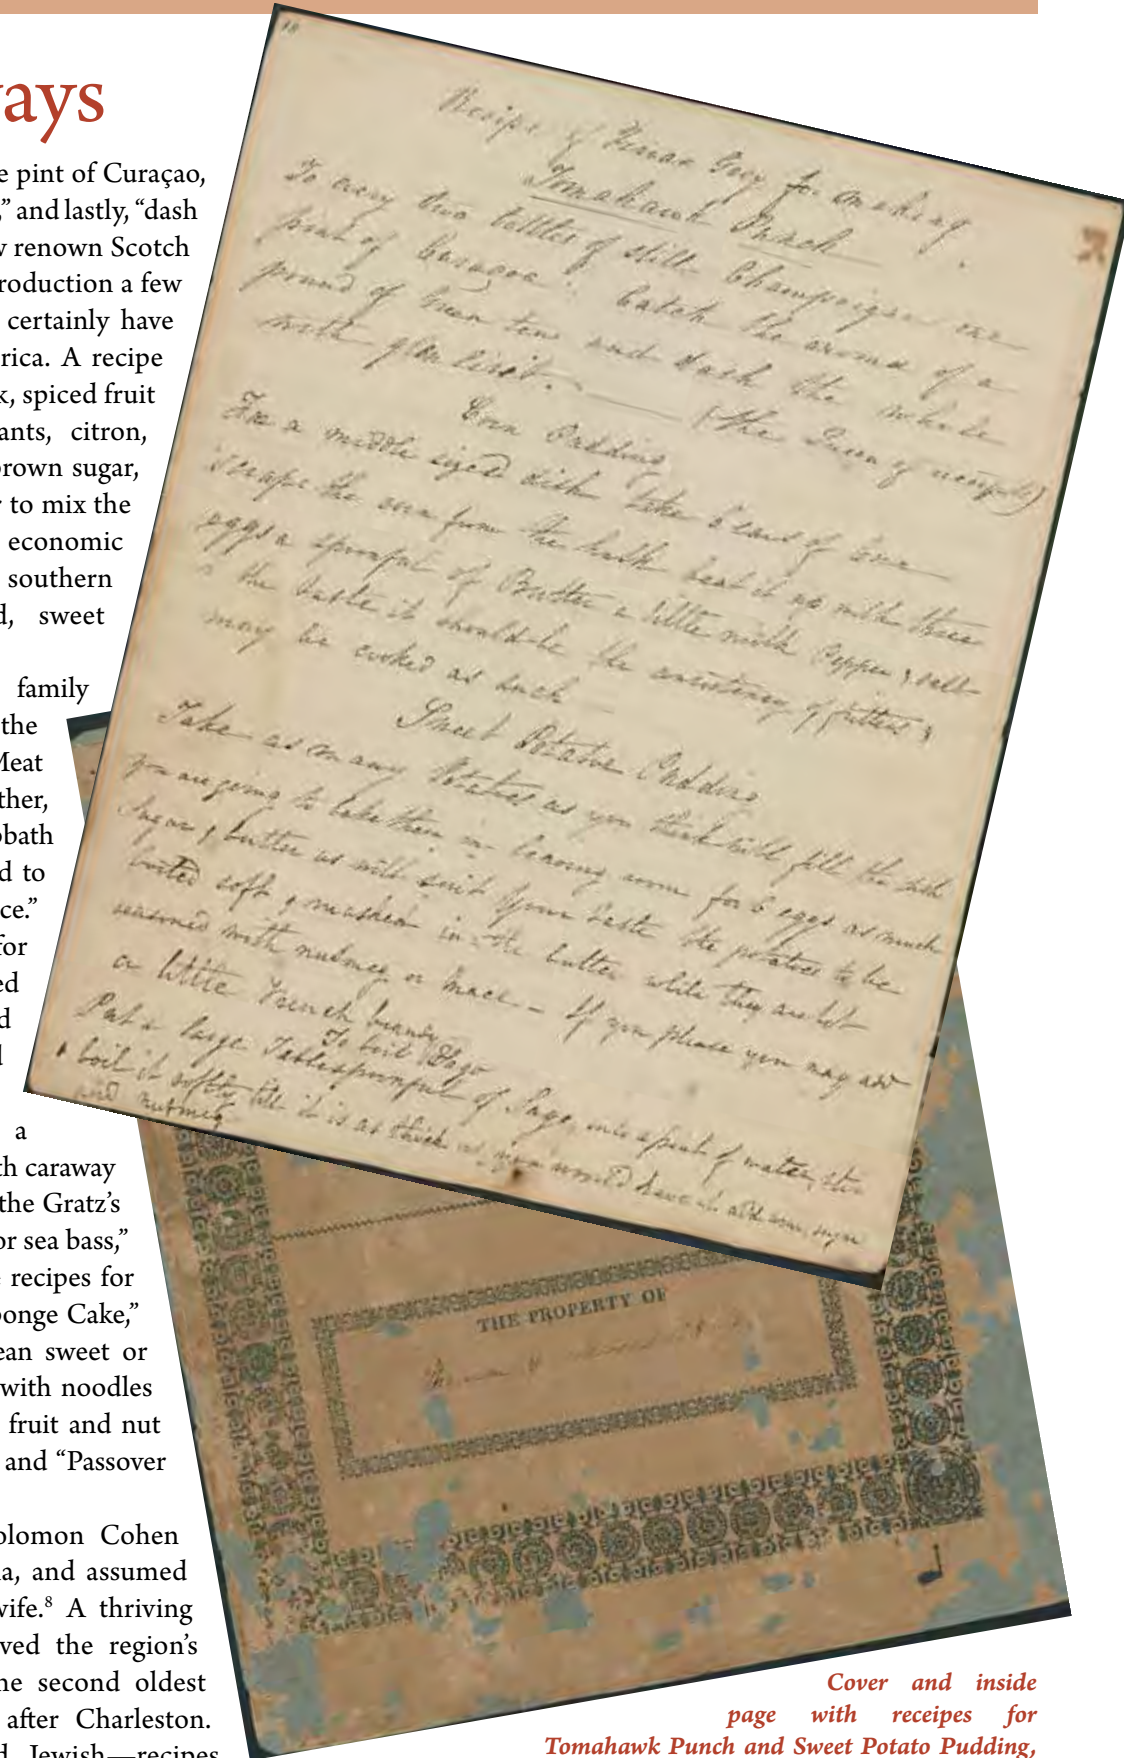 ays
e pint of Curaçao,
,” and lastly, “dash
w renown Scotch
roduction a few
certainly have
rica. A recipe
k, spiced fruit
ants, citron,
brown sugar,
r to mix the
economic
southern
d, sweet
family
the
Meat
ther,
bath
d to
ce.”
for
ed
d
l
a
th caraway
the Gratz’s
or sea bass,”
e recipes for
ponge Cake,”
ean sweet or
with noodles
fruit and nut
and “Passover
olomon Cohen
a, and assumed
wife.8 A thriving
ved the region’s
ne second oldest
after Charleston.
d Jewish—recipes
18
Recipe of Grey for making
Tomahawk Punch
To every two bottles of still Champaigne one
pint of Curaçoa. Catch the aroma of a
pound of Green tea and dash the whole
with Glen livit. (the Queen of receipts)
Corn Pudding
For a middle sized dish take 6 ears of Corn
scrape the corn from the husk beat it up with three
eggs a spoonful of Butter a little milk Pepper & salt
to the taste it should be the consistency of fritters &
may be cooked as such
Sweet Potatoe Pudding
Take as many Potatoes as you think will fill the dish
you are going to bake them in leaving room for 6 eggs as much
Sugar & butter as will suit your taste the potatoes to be
boiled soft & mashed in the butter while they are hot
seasoned with nutmeg or mace – If you please you may add
a little French brandy
To boil Sago
Put a large Tablespoonful of Sago into a pint of water, stir
& boil it softly till it is as thick as you would have it add wine, sugar
and nutmeg
THE PROPERTY OF
Cover and inside
page with receipes for
Tomahawk Punch and Sweet Potato Pudding,